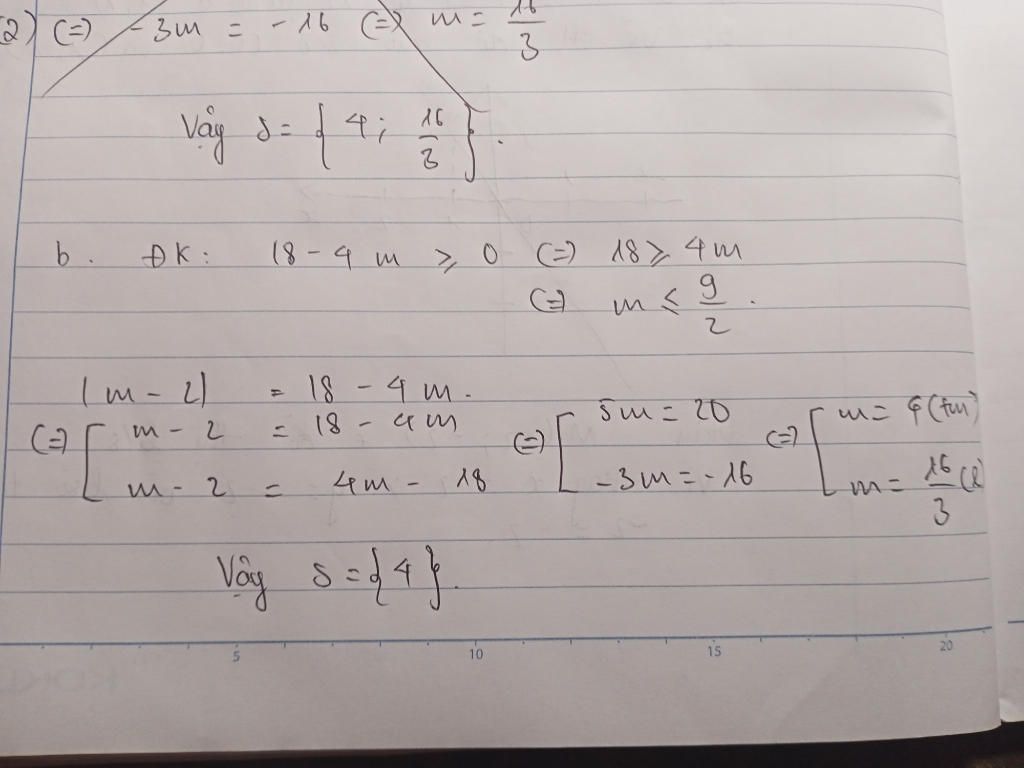 (2) (=) -3m = -16 (=) m = 16/3
Vậy S = { 4; 16/3 }.
b. ĐK: 18 - 4m ⩾ 0 (=) 18 ⩾ 4m
(=) m ⩽ 9/2.
|m - 2| = 18 - 4m.
(=) [ m - 2 = 18 - 4m (=) [ 5m = 20 (=) [ m = 4 (tm)
m - 2 = 4m - 18 -3m = -16 m = 16/3 (l)
Vậy S = {4}.
5 10 15 20